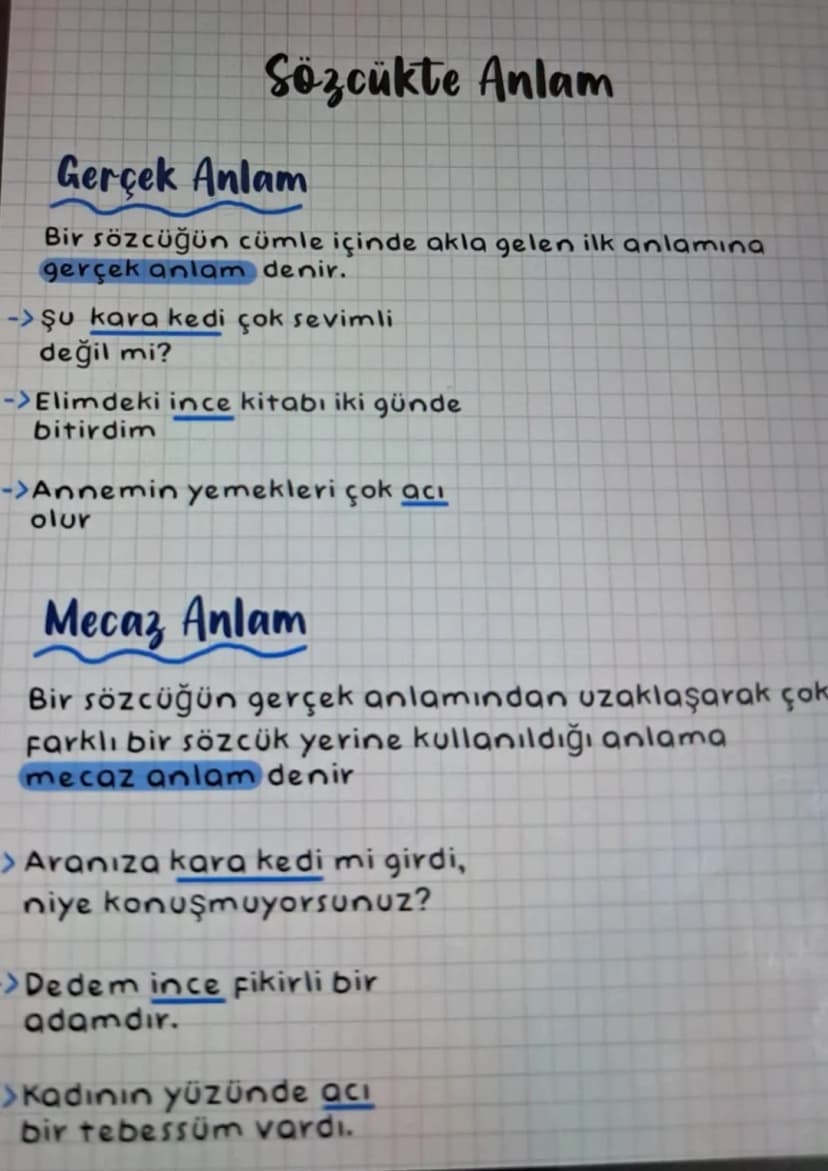 Sözcükte Anlam
Gerçek Anlam
Bir sözcüğün cümle içinde akla gelen ilk anlamına
gerçek anlam denir.
-> Şu kara kedi çok sevimli
değil mi?
-> Elimdeki ince kitabı iki günde
bitirdim
-> Annemin yemekleri çok acı
olur
Mecaz Anlam
Bir sözcüğün gerçek anlamından uzaklaşarak çok
farklı bir sözcük yerine kullanıldığı anlama
mecaz anlam denir
> Aranıza kara kedi mi girdi,
niye konuşmuyorsunuz?
-> Dedem ince fikirli bir
adamdır.
> Kadının yüzünde acı
bir tebessüm vardı.